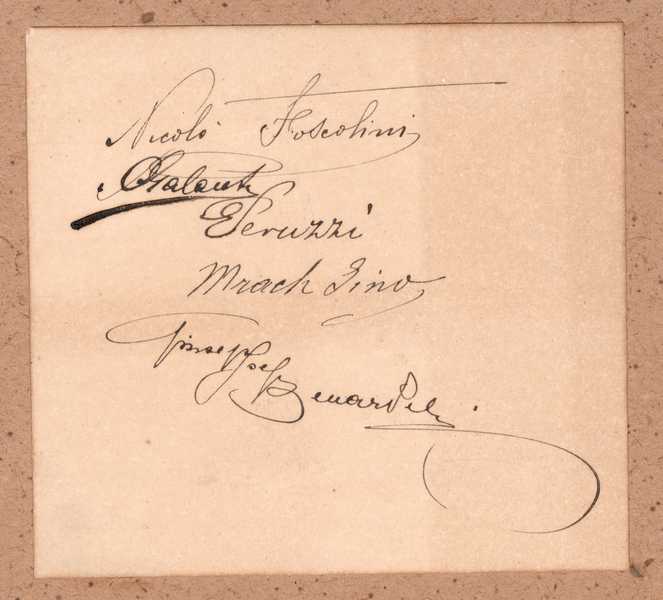 Nicolò Foscolini
Galanti
E Peruzzi
Mrach Gino
Giuseppe Benardeli